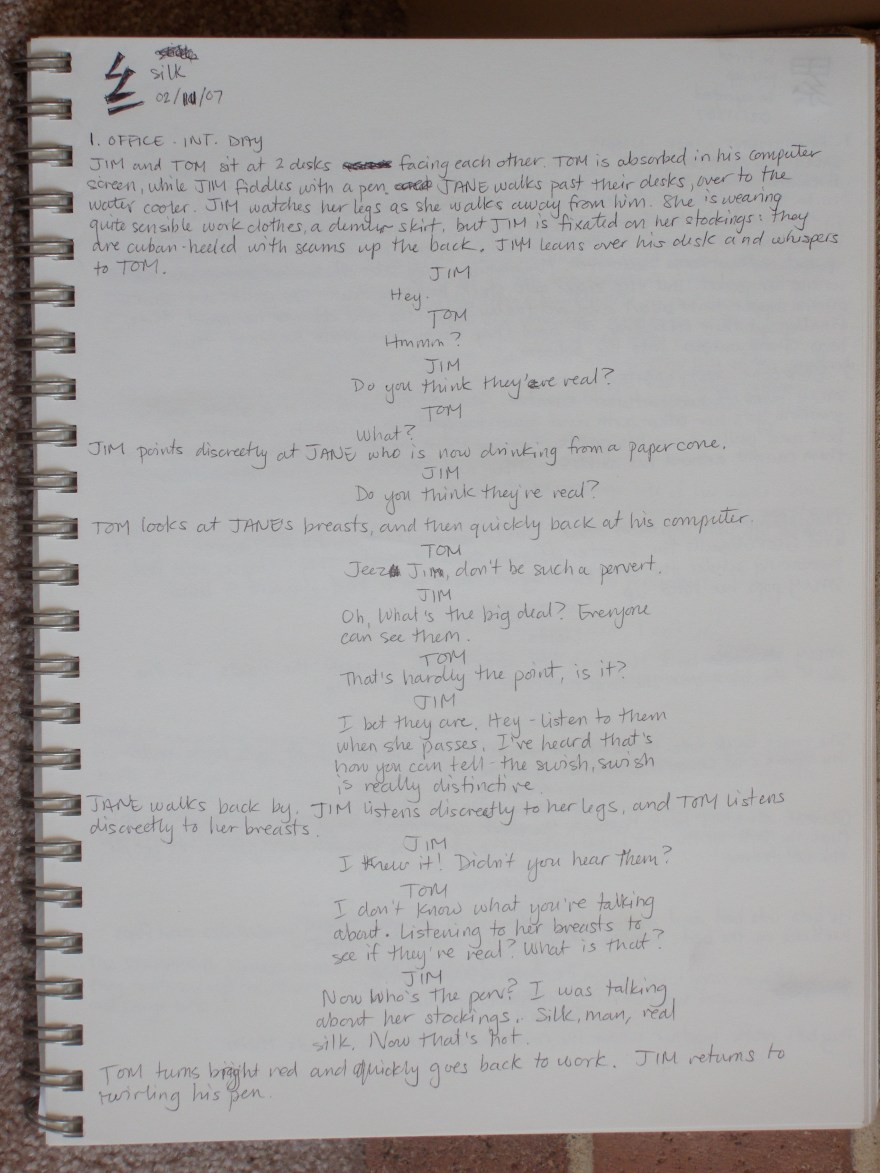 silk
02/11/07
1. OFFICE. INT. DAY
JIM and TOM sit at 2 desks facing each other. TOM is absorbed in his computer
screen, while JIM fiddles with a pen. JANE walks past their desks, over to the
water cooler. JIM watches her legs as she walks away from him. She is wearing
quite sensible work clothes, a demure skirt, but JIM is fixated on her stockings: they
are cuban-heeled with seams up the back. JIM leans over his desk and whispers
to TOM.
JIM
Hey.
TOM
Hmmm?
JIM
Do you think they're real?
TOM
What?
JIM points discreetly at JANE who is now drinking from a paper cone.
JIM
Do you think they're real?
TOM looks at JANE's breasts, and then quickly back at his computer.
TOM
Jeez Jim, don't be such a pervert.
JIM
Oh, what's the big deal? Everyone
can see them.
TOM
That's hardly the point, is it?
JIM
I bet they are. Hey - listen to them
when she passes. I've heard that's
how you can tell - the swish, swish
is really distinctive.
JANE walks back by. JIM listens discreetly to her legs, and TOM listens
discreetly to her breasts.
JIM
I knew it! Didn't you hear them?
TOM
I don't know what you're talking
about. Listening to her breasts to
see if they're real? What is that?
JIM
Now who's the perv? I was talking
about her stockings. Silk, man, real
silk. Now that's hot.
TOM turns bright red and quickly goes back to work. JIM returns to
twirling his pen.